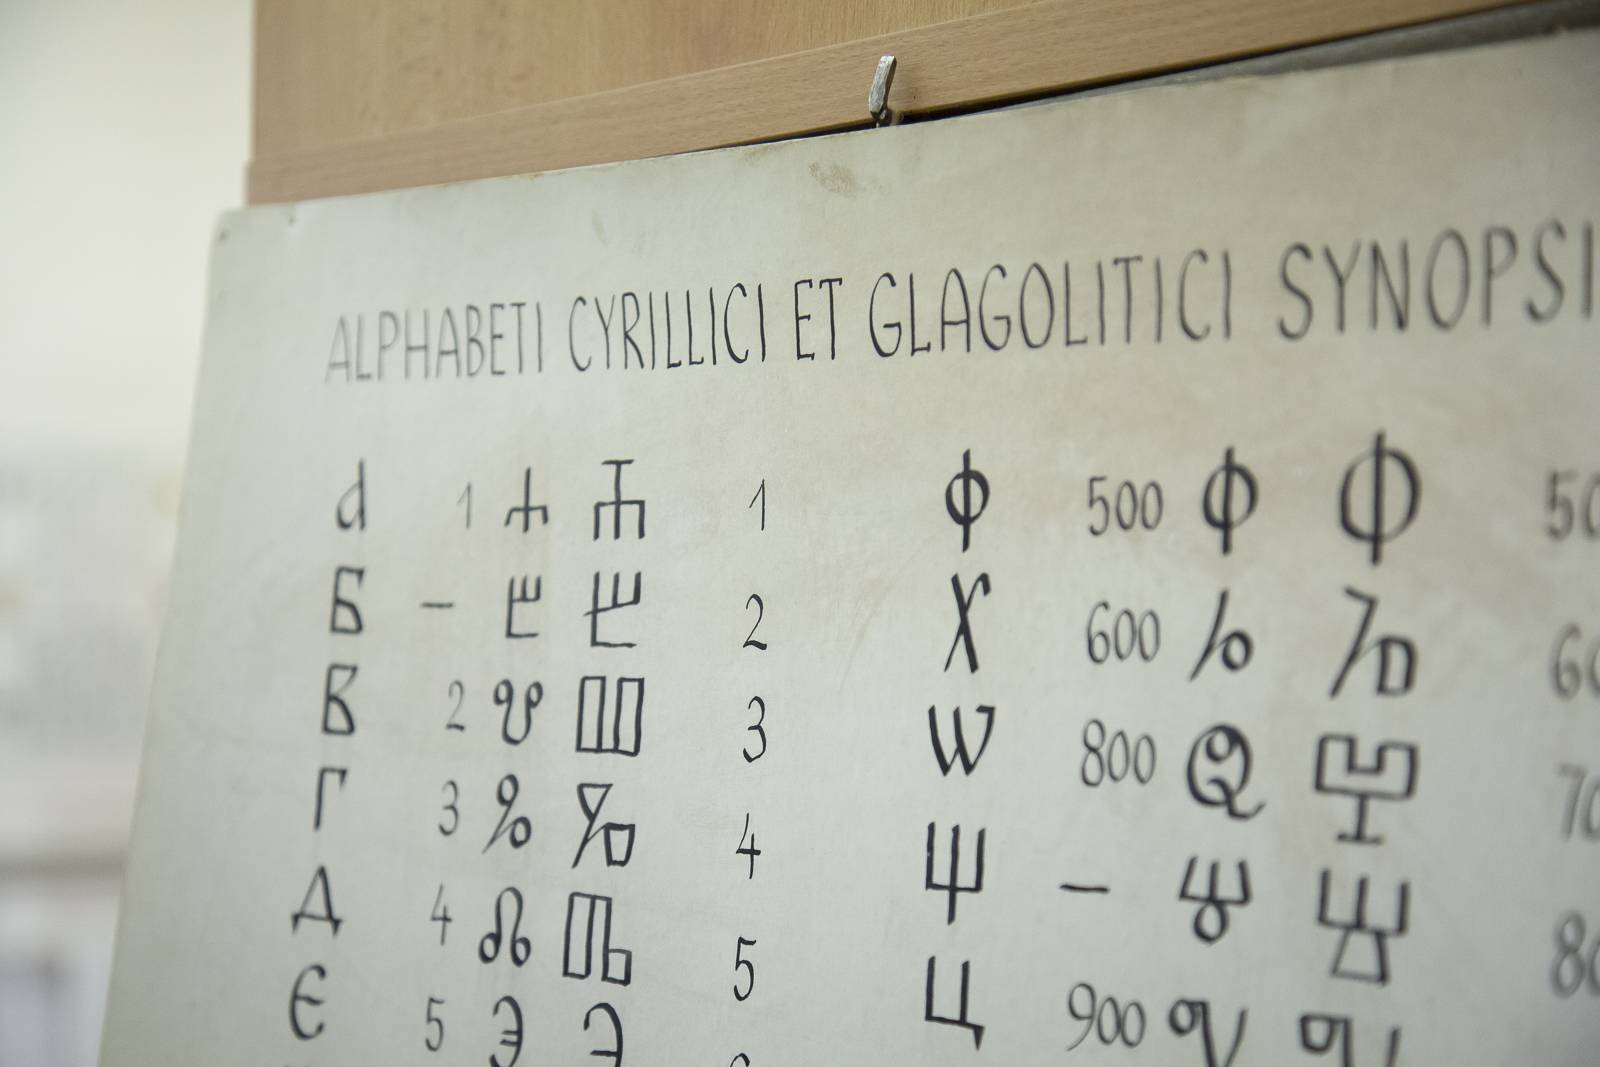 ALPHABETI CYRILLICI ET GLAGOLITICI SYNOPSI
а 1 ⰰ Ⰰ 1 ф 500 ⱇ Ⱇ 50
Б – ⰱ Ⰱ 2 Х 600 ⱈ Ⱈ 60
В 2 ⰲ Ⰲ 3 Ѡ 800 ⱉ Ⱉ 70
Г 3 ⰳ Ⰳ 4 Щ – ⱋ Ⱋ 80
Д 4 ⰴ Ⰴ 5 Ц 900 ⱌ Ⱌ
Є 5 ⰵ Ⰵ